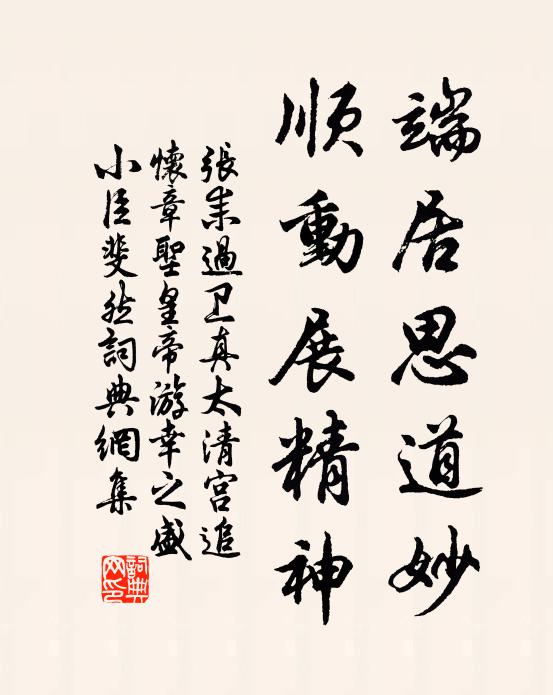 端居思道妙
順動展精神
張耒過卫真太清宫追
懷章聖皇帝游幸之盛
小臣斐然詞典網集
詞典网印